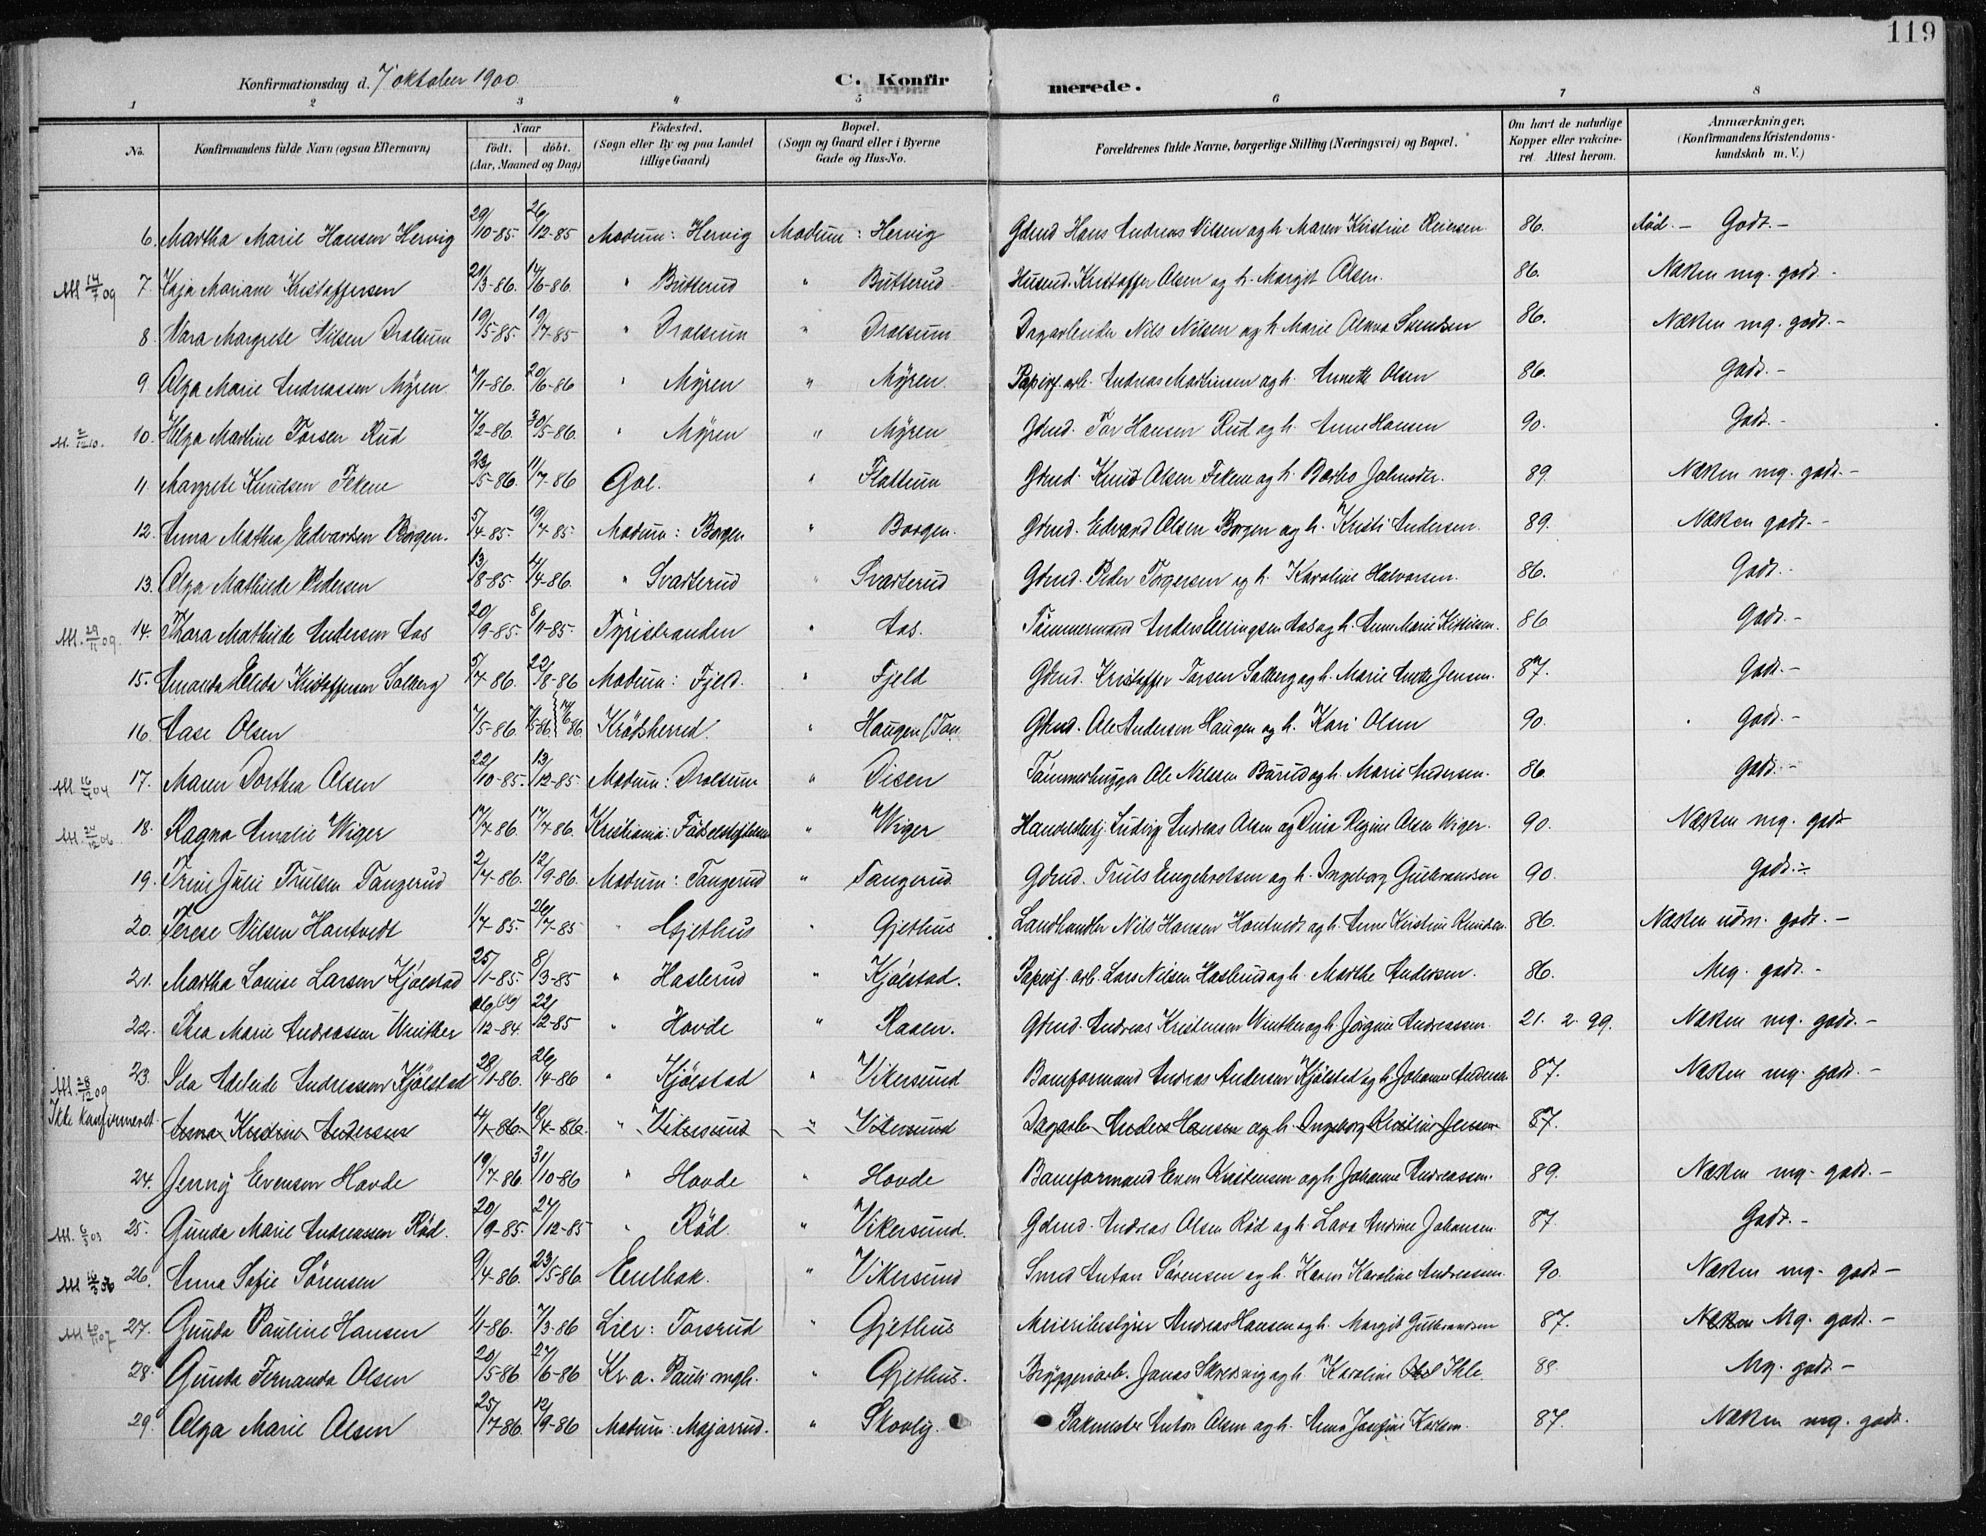 119
Konfirmationsdag d. 7 oktober 1900 C. Konfirmerede.
1 2 3 4 5 6 7 8
No. Konfirmandens fulde Navn (ogsaa Efternavn) Naar födt. döbt. (Aar, Maaned og Dag) Födested. (Sogn eller By og paa Landet tillige Gaard) Bopæl. (Sogn og Gaard eller i Byerne Gade og Hus-No. Forældrenes fulde Navne, borgerlige Stilling (Næringsvei) og Bopæl. Om havt de naturlige Kopper eller vakcineret. Attest herom. Anmærkninger. (Konfirmandens Kristendomskundskab m. V.)
6. Martha Marie Hansen Hervig 29/10-85. 26/12-85 Modum: Hervig Modum: Hervig Gdmd Hans Andreas Nilsen og h. Maren Kristine Reiersen 86. Godt. -
M 14/7 09 7. Kaja Mariane Kristoffersen 21/3-86. 14/6-86. " Butterud " Butterud Husmd. Kristoffer Olsen og h. Margit Olsen. 86. Næsten mg. godt -
8. Nora Margrete Nilsen Drolsum 19/5-85. 19/7-85 " Drolsum " Drolsum Dagarbeider Nils Nilsen og h. Marie Svendsen 86. Næsten mg. godt. -
9. Olga Marie Andreassen Myren 7/1-86. 20/6-86 " Myren " Myren Papirf. arb. Andreas Martinsen og h. Annette Olsen 86. Godt. -
10. Helga Martine Torsen Rud 7/2-86. 30/5-86. " Myren " Myren Gdmd. Tor Hansen Rud og h. Anne Hansen 90. Godt. -
11. Margrete Knudsen Fekene 23/5-86. 11/7-86 Gol. " Flattum Gdmd. Knud Olsen Fekene og h. Barbo Johnsdtr. 89. Næsten mg. godt. -
12. Anna Mathea Edvardsen Borgen. 5/4-85. 19/4-85. Modum: Borgen " Borgen. Gdmd. Edvard Olsen Borgen og h. Kristi Andersen. 89. Næsten godt. -
13. Olga Mathilde Pedersen 13/8-85. 4/4-86. " Svarterud " Svarterud Gdmd. Peder Torgersen og h. Karoline Halvorsen. 86. Godt. -
M. 29/11 09. 14. Thora Mathilde Andersen Aas 20/9-85. 8/11-85. Tyristranden " Aas. Tømmermand Anders Ellingsen Aas og h. Anne Marie 86 Godt. -
15. Amanda Elida Kristoffersen Solberg 5/7-86. 22/8-86 Modum: Fjeld. " Fjeld Gdmd. Kristoffer Torsen Solberg og h. Marie Jensen. 87. Godt. -
16. Aase Olsen 7/5-86. Krødsherred. " Haugen Gbmd. Ole Andersen Haugen og h. Kari Olsen 90. Godt. -
M. 16/4 04 17. Maren Dorthea Olsen 22/10-85. 13/12-85 Modum: Drolsum " Disen Tømmerhugger Ole Nilsen Burud og h. Marie Andersen. 86. Godt. -
M. 26/12 06. 18. Ragna Amalie Wiger 17/7-86. 17/7-86. Kristiania: Fødselsstiftelsen " Wiger Handelsbetj. Ludvig Andreas Olsen og Dina Regine Olsen Wiger. 90. Næsten mg. godt
19. Trine Julie Trulsen Tangerud 2/7-86. 12/9-86. Modum: Tangerud " Tangerud. Gdmd. Truls Engebretsen og h. Ingeborg Gulbrandsen 90. Godt. -
20. Terese Nilsen Hontvedt 1/7-85. 26/7-85 " Gjethus " Gjethus Landhandler Nils Hansen Hontvedt og h. Anne Kirstine Knudsen. 86. Næsten udm. godt. -
21. Martha Louise Larsen Kjølstad 25/1-85. 8/3-85 " Haslerud " Kjølstad. Papirf. arb. Lars Nilsen Haslerud og h. Marthe Andersen. 86. Meg. godt. -
22. Thea Marie Andreassen Winther 12-84. 22/12-85 " Hovde " Raaen. Gbmd. Andreas Kristensen Winther og h. Jørgine Andreassen. 21. 2. 99. Næsten mg. godt. -
M 28/12 09 23. Ida Adeleide Andreassen Kjølstad 28/1-86. 26/4-86 " Kjølstad " Vikersund Baneformand Andreas Andersen Kjølstad og h. Johanne Andersen 87. Næsten mg. godt. -
Ikke konfirmeret Anna Kristine Andersen 4/1-86. 18/4-86. " Vikersund " Vikersund Dagarb. Anders Hansen og h. Ingeborg Kristine Jensen 87.
24. Jenny Evensen Hovde 19/7-86. 31/10-86 " Hovde " Hovde Baneformand Even Kristensen og h. Johanne Andreassen. 89. Næsten mg. godt. -
M. 6/3 03 25. Gunda Marie Andreassen Rød. 20/9-85. 27/12-85 " Rød. " Vikersund. Gdmd. Andreas Olsen Rød og h. Lava Andrine Johansen 87. Godt. -
26. Anna Sofie Sørensen 9/4-86. 23/5-86. Enebak. " Vikersund Smed Anton Sørensen og h. Karen Karoline Andreassen. 90. Næsten mg. godt -
M 20/11 07 27. Gunda Pauline Hansen 1/1-86. 7/3-86 Lier: Torsrud " Gjethus Meieribestyrer Andreas Hansen og h. Margit Gulbrandsen 87. Næsten Mg. godt. -
28. Gunda Fernanda Olsen 20/5-86 27/6-86 Kr.a. Pauls mgh. " Gjethus. Bryggeriarb. Jonas Skredsvig og h. Karoline Ihle. 88 Mg. godt. -
29. Olga Marie Olsen 25/7-86. 12/9-86 Modum: Mojorud. " Skovly. Pakmester Anton Olsen og h. Anna Josefine Karlsen. 87. Næsten mg. godt.